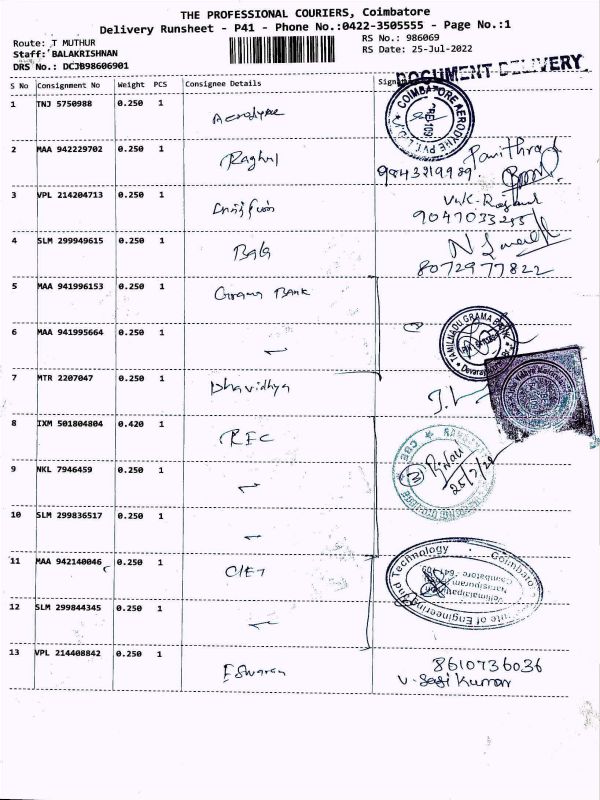 THE PROFESSIONAL COURIERS, Coimbatore
Delivery Runsheet - P41 - Phone No.:0422-3505555 - Page No.:1
Route: T MUTHUR
RS No.: 986069
Staff: BALAKRISHNAN
RS Date: 25-Jul-2022
DRS No.: DCJB98606901
DOCUMENT DELIVERY
S No Consignment No Weight PCS Consignee Details
1 TNJ 5750988 0.250 1
COIMBATORE AERODYNE PVT. LTD
2 MAA 942229702 0.250 1 Raghul Pavithra
9843219989
3 VPL 214204713 0.250 1
9047033255
4 SLM 299949615 0.250 1 Bala
8072977822
5 MAA 941996153 0.250 1 Grama Bank
TAMILNADU GRAMA BANK
6 MAA 941995664 0.250 1
7 MTR 2207047 0.250 1 Dhavidhya
8 IXM 501804804 0.420 1 REC
25/7/22
9 NKL 7946459 0.250 1
10 SLM 299836517 0.250 1
11 MAA 942140046 0.250 1 CIET
Coimbatore Institute of Engineering and Technology
Vellimalaipattinam
Narasipuram
Coimbatore - 641 109
12 SLM 299844345 0.250 1
13 VPL 214408842 0.250 1 Eswaran 8610736036
V. Sasi Kumar